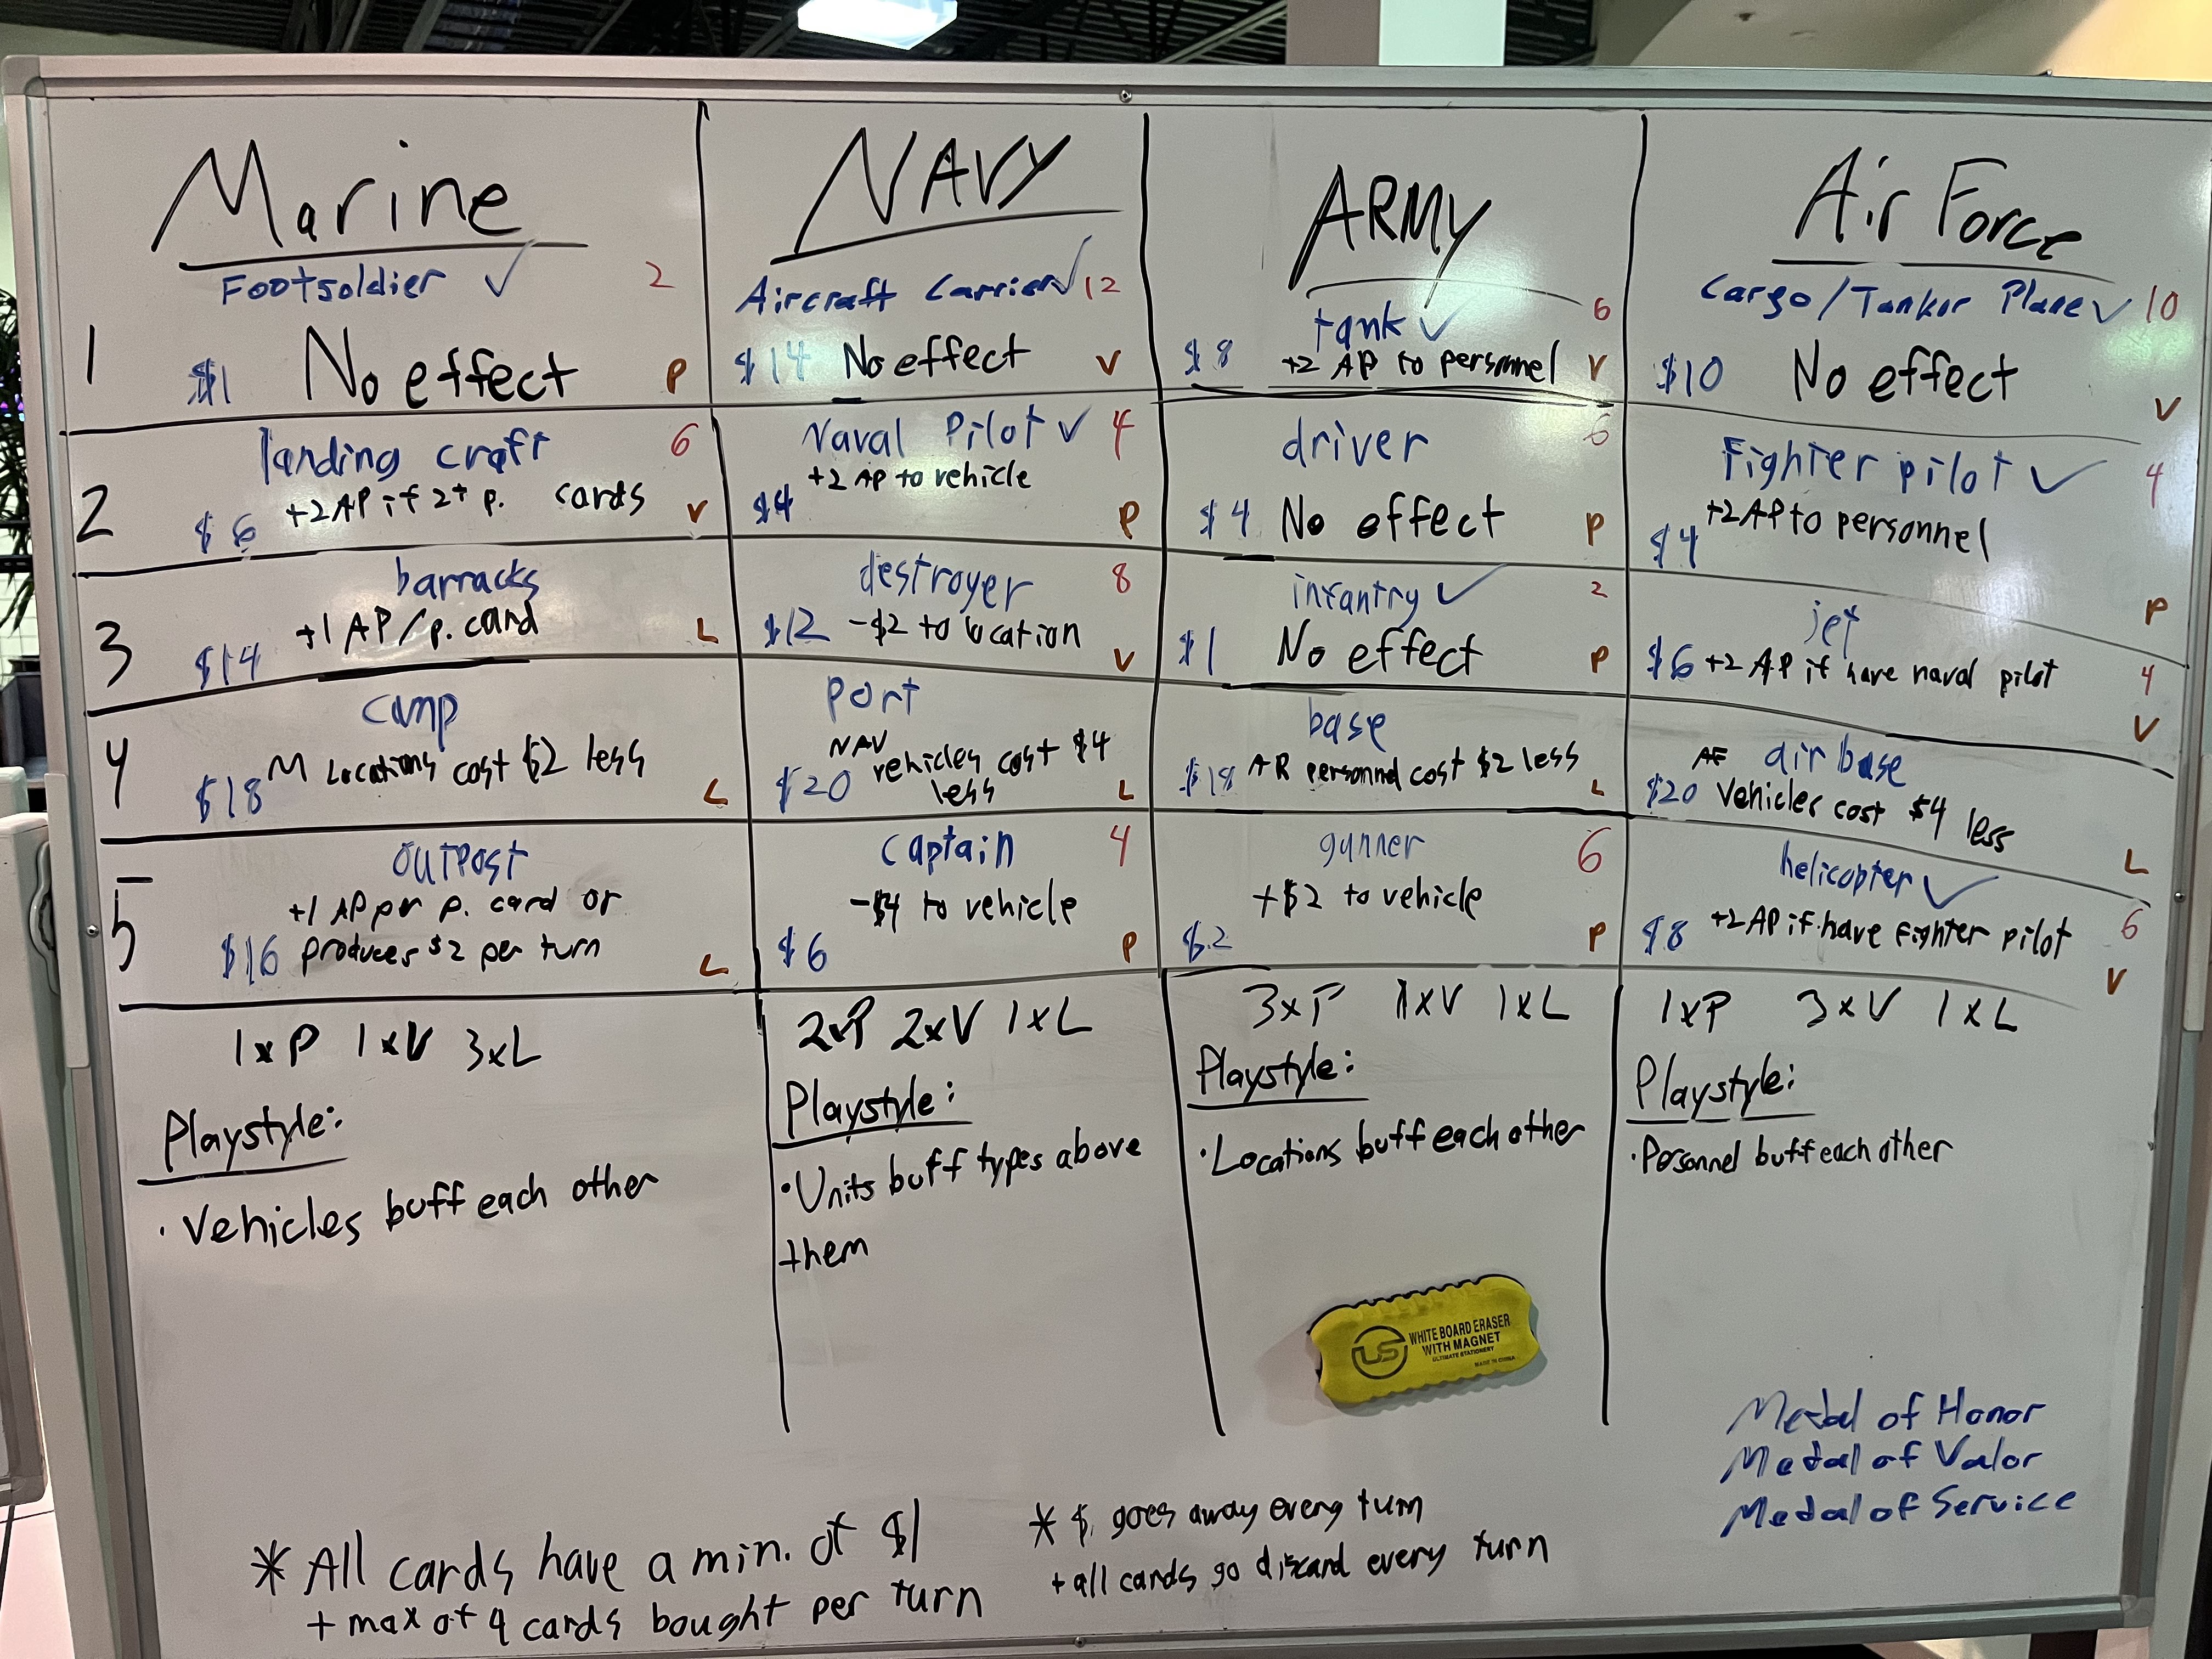 Marine
Footsoldier ✓ 2
1 $1 No effect P
landing craft 6
+2AP if 2+ p. cards
2 $6 V
barracks
+1 AP/p. card
3 $14 L
camp
M Locations cost $2 less
4 $18 L
outpost
+1 AP per p. card or
5 $16 produces $2 per turn L
1xP 1xV 3xL
Playstyle:
• Vehicles buff each other
NAVY
Aircraft Carrier ✓ 12
$14 No effect V
Naval Pilot ✓ 4
+2 AP to vehicle
$4 P
destroyer 8
$12 -$2 to location V
port
NAV
$20 vehicles cost $4
less L
captain 4
-$4 to vehicle
$6 P
2xP 2xV 1xL
Playstyle:
• Units buff types above
them
ARMY
tank ✓ 6
$8 +2 AP to personnel V
driver 6
$4 No effect P
infantry ✓ 2
$1 No effect P
base
$18 AR personnel cost $2 less L
gunner 6
+$2 to vehicle
$2 P
3xP 1xV 1xL
Playstyle:
• Locations buff each other
WHITE BOARD ERASER
WITH MAGNET
ULTIMATE STATIONERY
MADE IN CHINA
US
Air Force
Cargo/Tankor Plane ✓ 10
$10 No effect V
Fighter pilot ✓ 4
+2AP to personnel
$4 P
jet
$6 +2 AP if have naval pilot 4
V
AF air base
$20 Vehicles cost $4 less
L
helicopter ✓
$8 +2AP if have fighter pilot 6
V
1xP 3xV 1xL
Playstyle:
• Personnel buff each other
Medal of Honor
Medal of Valor
Medal of Service
* All cards have a min. of $1
+ max of 4 cards bought per turn
* $ goes away every turn
+ all cards go discard every turn